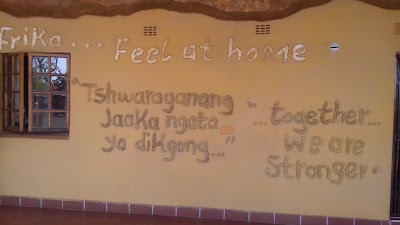 Afrika... Feel at home
"Tshwaraganang
Jaaka ngata
ya dikgong..."
"...together...
we are
Stronger"